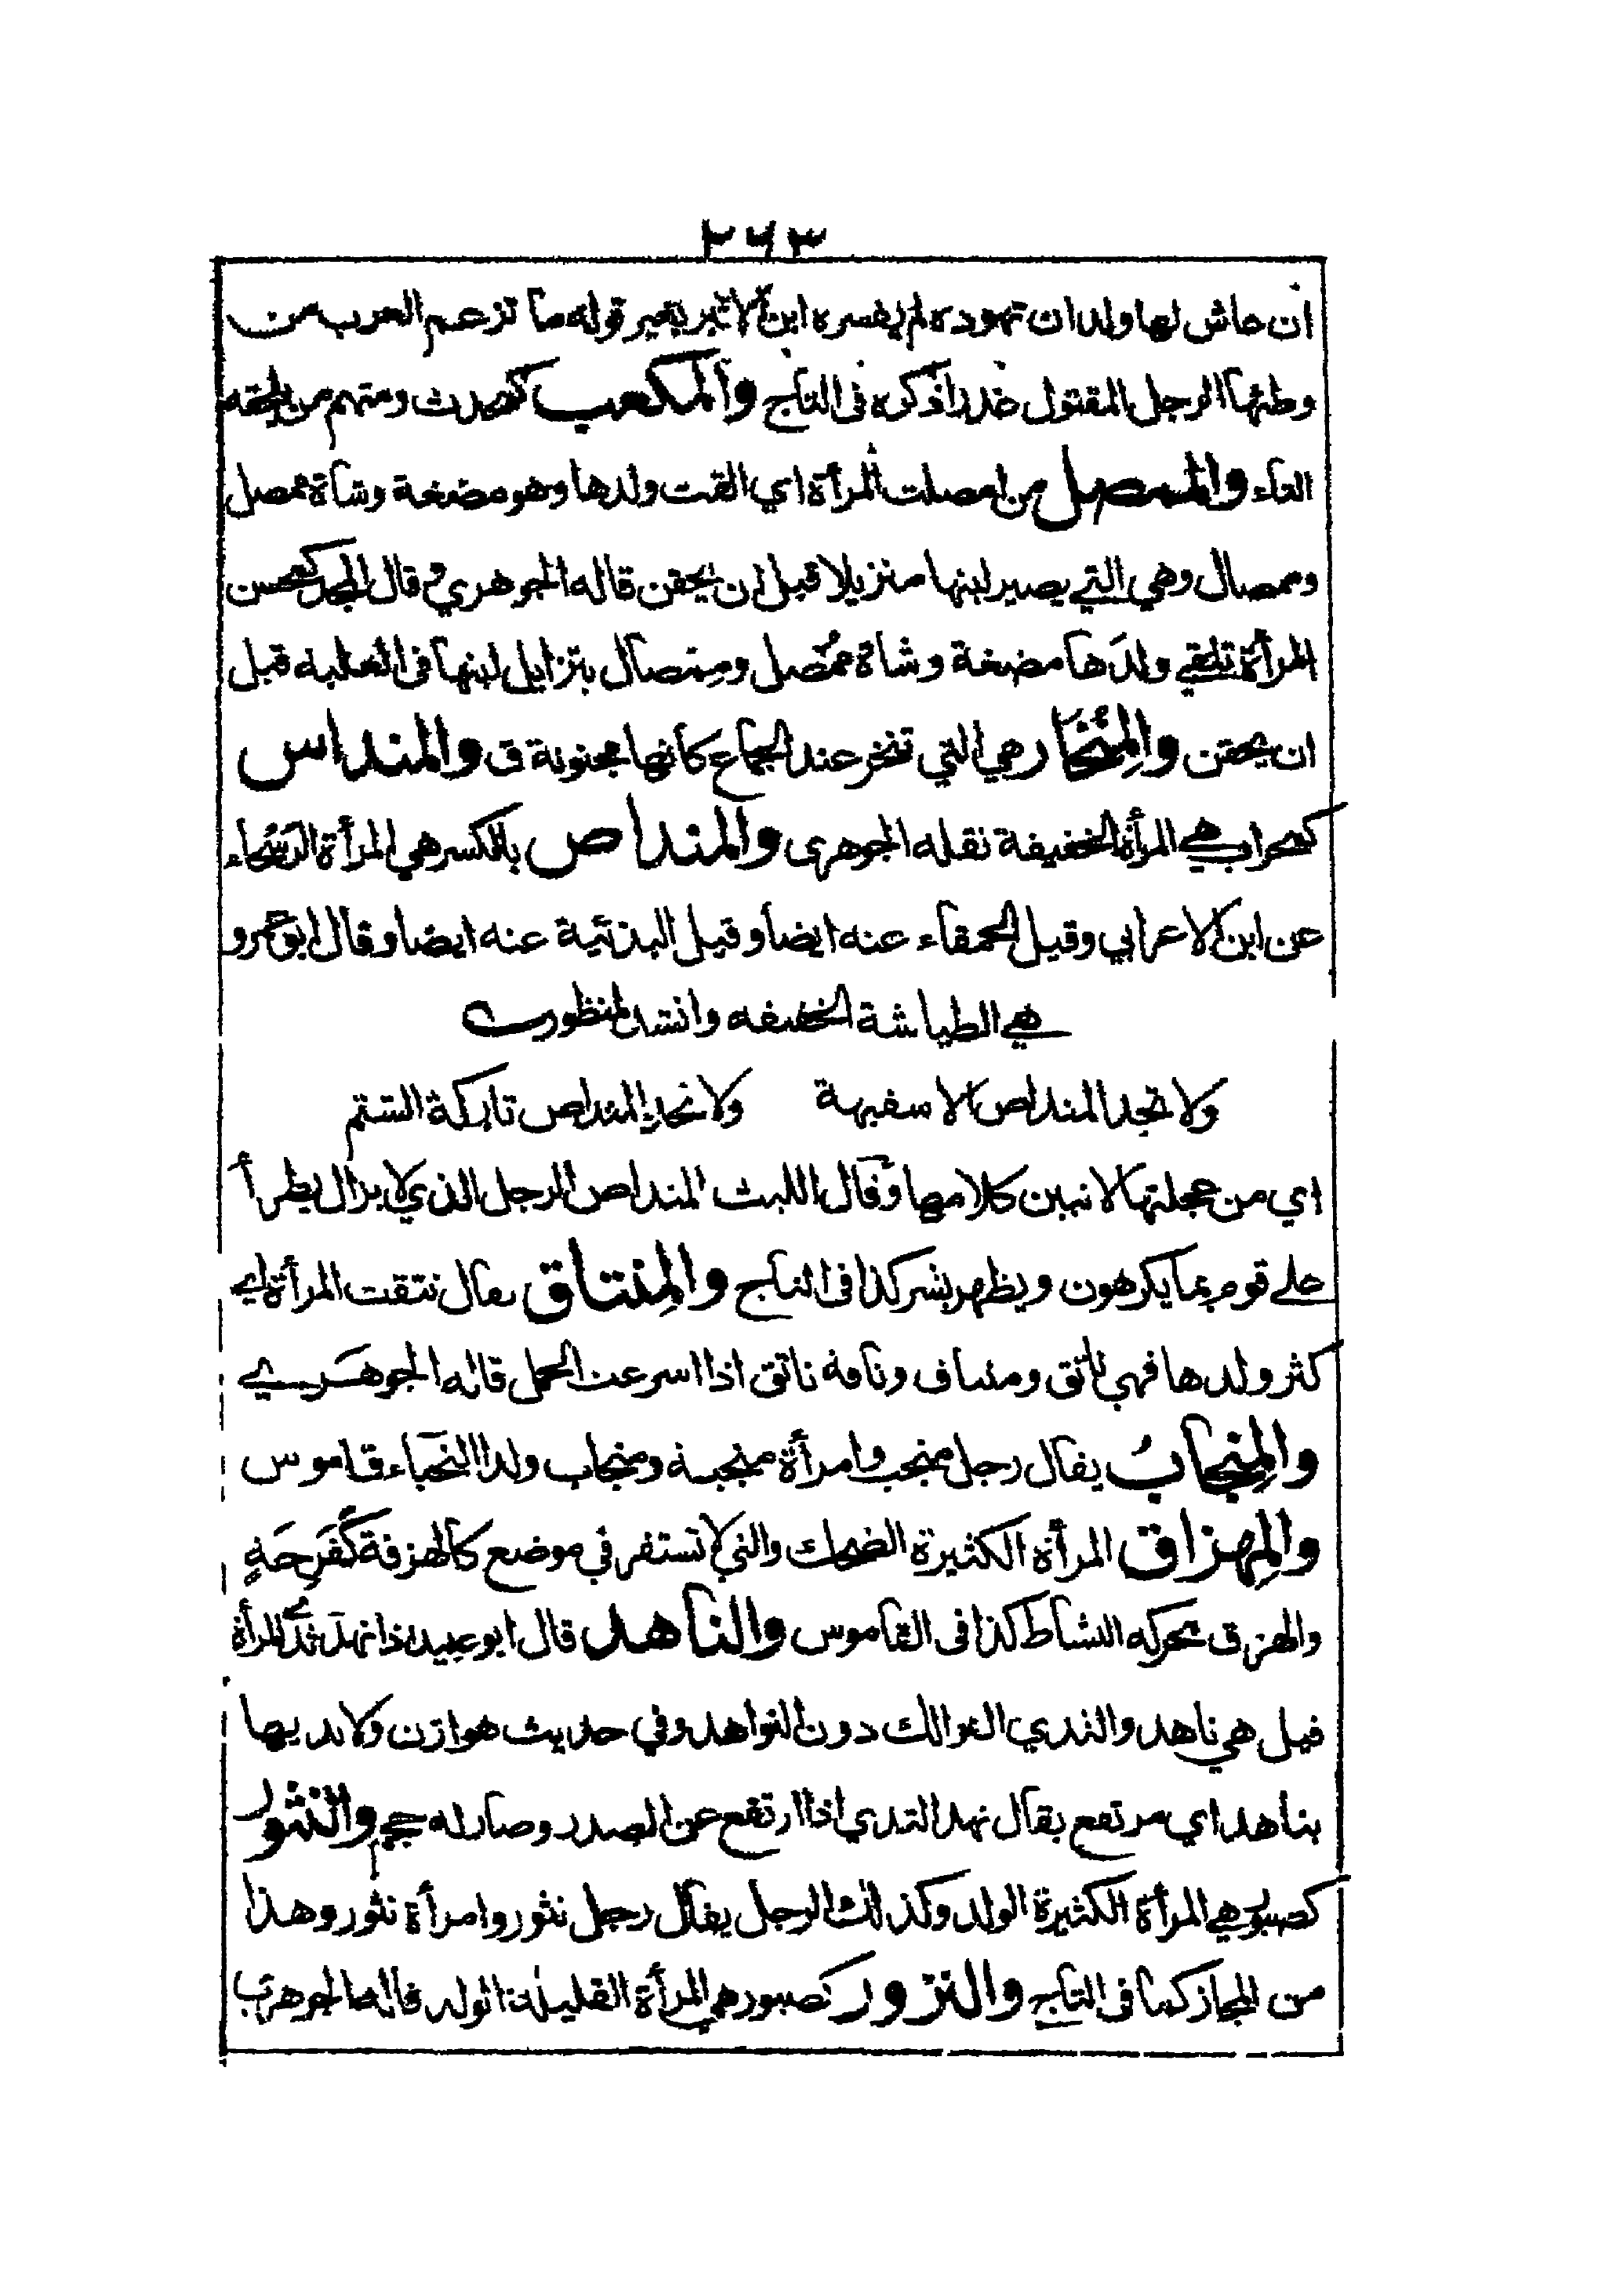 ٢٦٣
ان عاش لها ولد ان تهوده لم يفسره ابن الاثير بغير قوله ما تزعم العرب من
وطئها الرجل المقتول غدرا ذكره فى التاج والمكعب كمحدث ومتهم من بلحقه
الهاء والممصل من امصلت المرأة اي القت ولدها وهو مضغة وشاة ممصل
وممصال وهي التي يصير لبنها متزيلا قبل ان يحقن قاله الجوهري و قال المجد كمحسن
المرأة تلقي ولدَها مضغة وشاة مُمْصل وممصال يتزايل لبنها فى العلبه قبل
ان يحقن والمِنْخار هي التي تنخر عند الجماع كأنها مجنونة ق والمنداس
كمحراب هي المرأة الخفيفة نقله الجوهرى والمنداص بالكسر هي المرأة الرسحاء
عن ابن الاعرابي وقيل الحمقاء عنه ايضا وقيل البذئية عنه ايضا وقال ابو عمرو
هي الطياشة الخفيفه وانشد لمنظور
ولا تجد المنداص الا سفيهة ولا تجد المنداص تاركة الشتم
اي من عجلتها لا تبين كلامها وقال الليث المنداص الرجل الذي لا يزال يطرأ
على قوم بما يكرهون ويظهر بشر كذا فى التاج والمِنتاق يقال نتقت المرأة اي
كثر ولدها فهي ناتق ومنتاق وناقة ناتق اذا اسرعت الحمل قاله الجوهري
والمِنجابُ يقال رجل منجب وامرأة منجبة ومنجاب ولدا النجباء قاموس
والمِهزاق المرأة الكثيرة الضحك والتي لا تستقر في موضع كالهزقة كَفَرِحَةٍ
والهزق محركه النشاط كذا فى القاموس والناهد قال ابو عبيد اذا نهد ثدي المرأة
قيل هي ناهد والثدي الفوالك دون النواهد وفي حديث هوازن ولا ثديها
بناهد اي مرتفع يقال نهد الثدي اذا ارتفع عن الصدر وصار له حجم والنثور
كصبور هي المرأة الكثيرة الولد وكذلك الرجل يقال رجل نثور وامرأة نثور وهذا
من المجاز كما فى التاج والنزور كصبور هي المرأة القليلة الولد قاله الجوهري